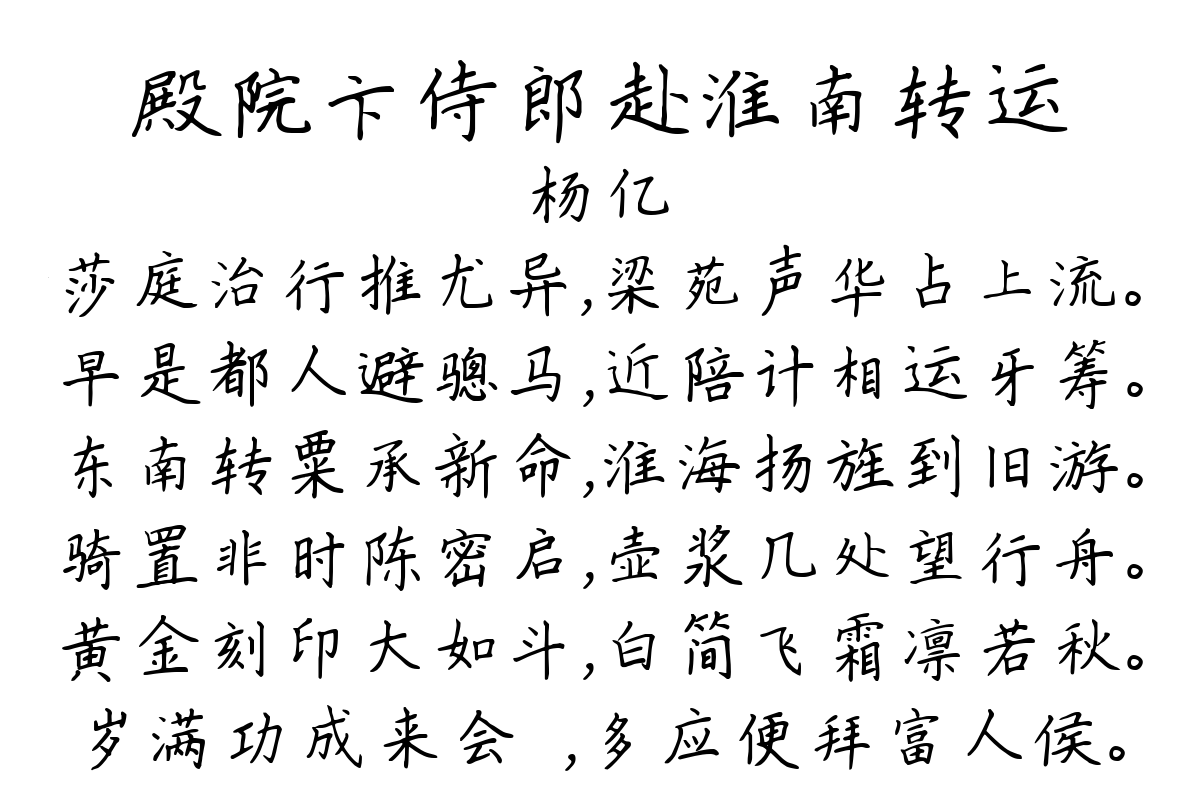 殿院卞侍郎赴淮南转运
杨亿
莎庭治行推尤异,梁苑声华占上流。
早是都人避骢马,近陪计相运牙筹。
东南转粟承新命,淮海扬旌到旧游。
骑置非时陈密启,壶浆几处望行舟。
黄金刻印大如斗,白简飞霜凛若秋。
岁满功成来会 ,多应便拜富人侯。